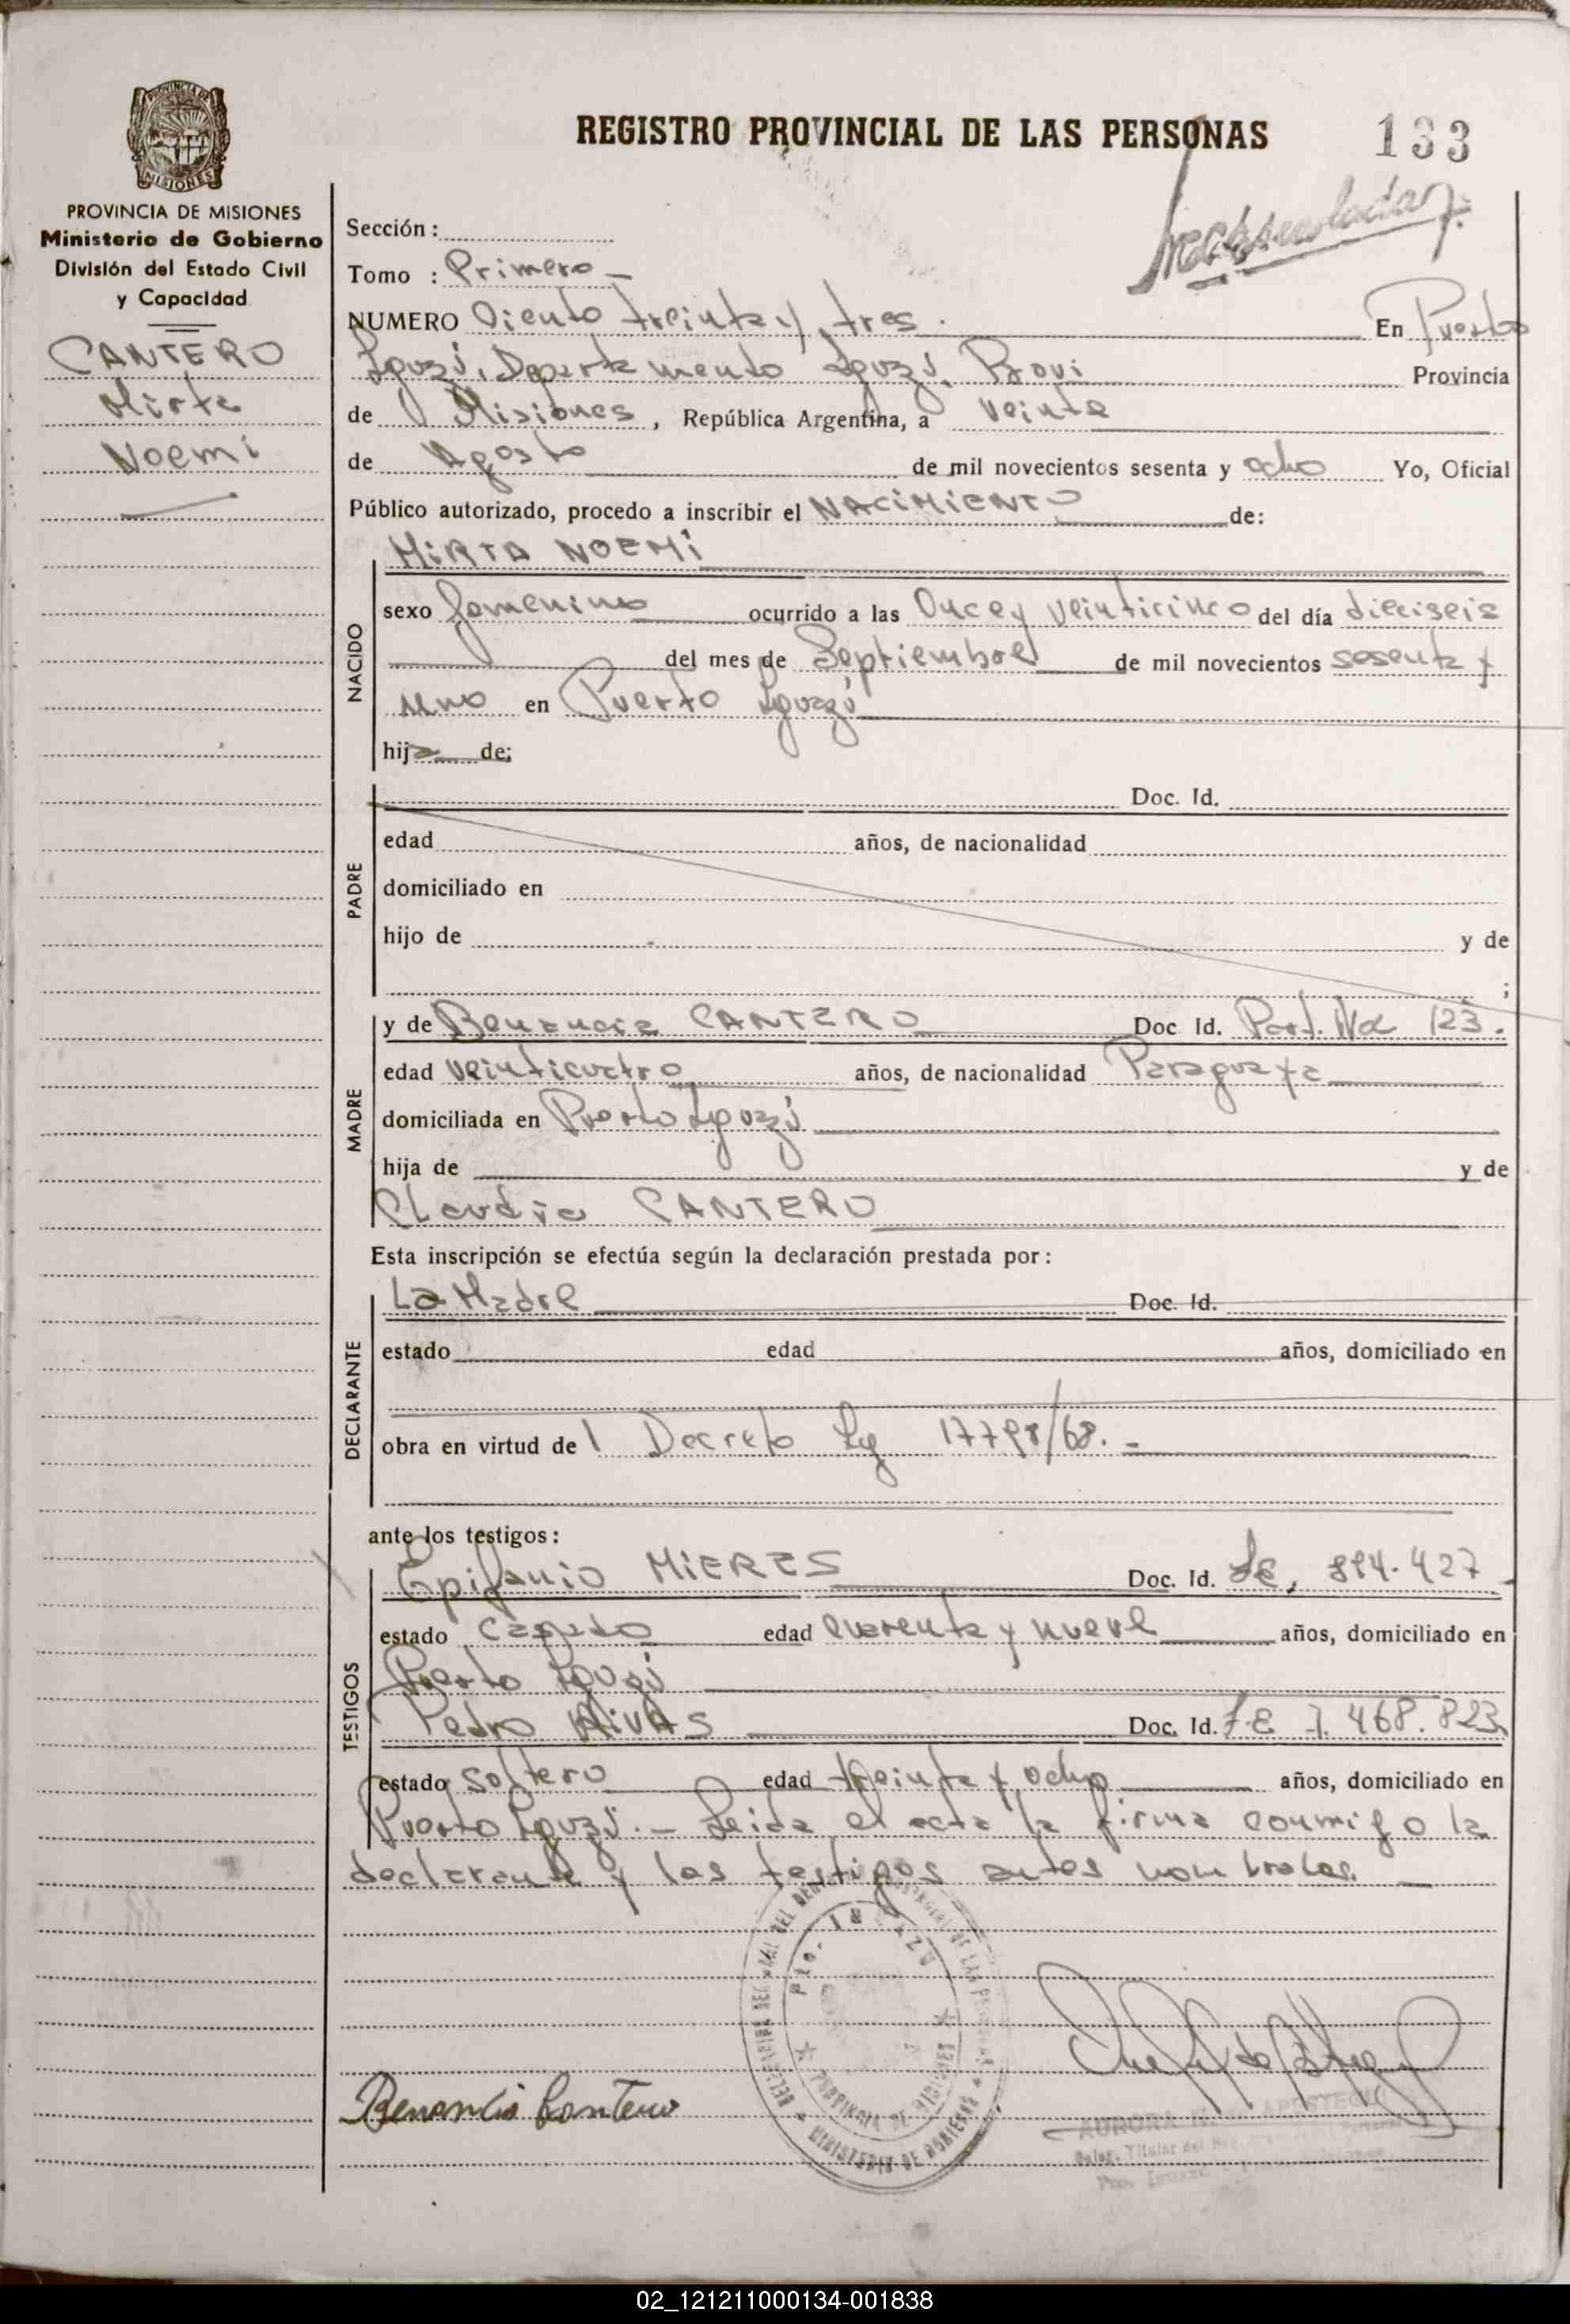 REGISTRO PROVINCIAL DE LAS PERSONAS
133
PROVINCIA DE
MISIONES
PROVINCIA DE MISIONES
Ministerio de Gobierno
División del Estado Civil
y Capacidad
CANTERO
Mirta
Noemi
Sección :
Tomo : Primero
NUMERO Ciento treinta y tres. En Puerto
Iguazú, Departamento Iguazú, Provi Provincia
de Misiones, República Argentina, a veinte
de Agosto de mil novecientos sesenta y ocho Yo, Oficial
Público autorizado, procedo a inscribir el NACIMIENTO de:
MIRTA NOEMI
NACIDO
sexo femenino ocurrido a las Once y veinticinco del día dieciseis
del mes de Septiembre de mil novecientos sesenta y
uno en Puerto Iguazú
hija de;
PADRE
Doc. Id.
edad años, de nacionalidad
domiciliado en
hijo de y de
;
MADRE
y de Benancia CANTERO Doc Id. Part. Na 123.
edad veinticuatro años, de nacionalidad Paraguaya
domiciliada en Puerto Iguazú
hija de y de
Claudia CANTERO
Esta inscripción se efectúa según la declaración prestada por :
DECLARANTE
La Madre Doc. Id.
estado edad años, domiciliado en
obra en virtud del Decreto Ley /68. -
ante los testigos :
TESTIGOS
Epifanio MIERES Doc. Id. LE, 894.427
estado Casado edad cuarenta y nueve años, domiciliado en
Puerto Iguazú
Pedro RIVAS Doc. Id. LE 7.468.823
estado Soltero edad treinta y ocho años, domiciliado en
Puerto Iguazú. - Leida el acta la firma conmigo la
declarante y los testigos antes nombrados.
PTO. IGUAZU
PROVINCIA DE MISIONES
MINISTERIO DE GOBIERNO
Benancia Cantero
AURORA
Titular del
02_121211000134-001838